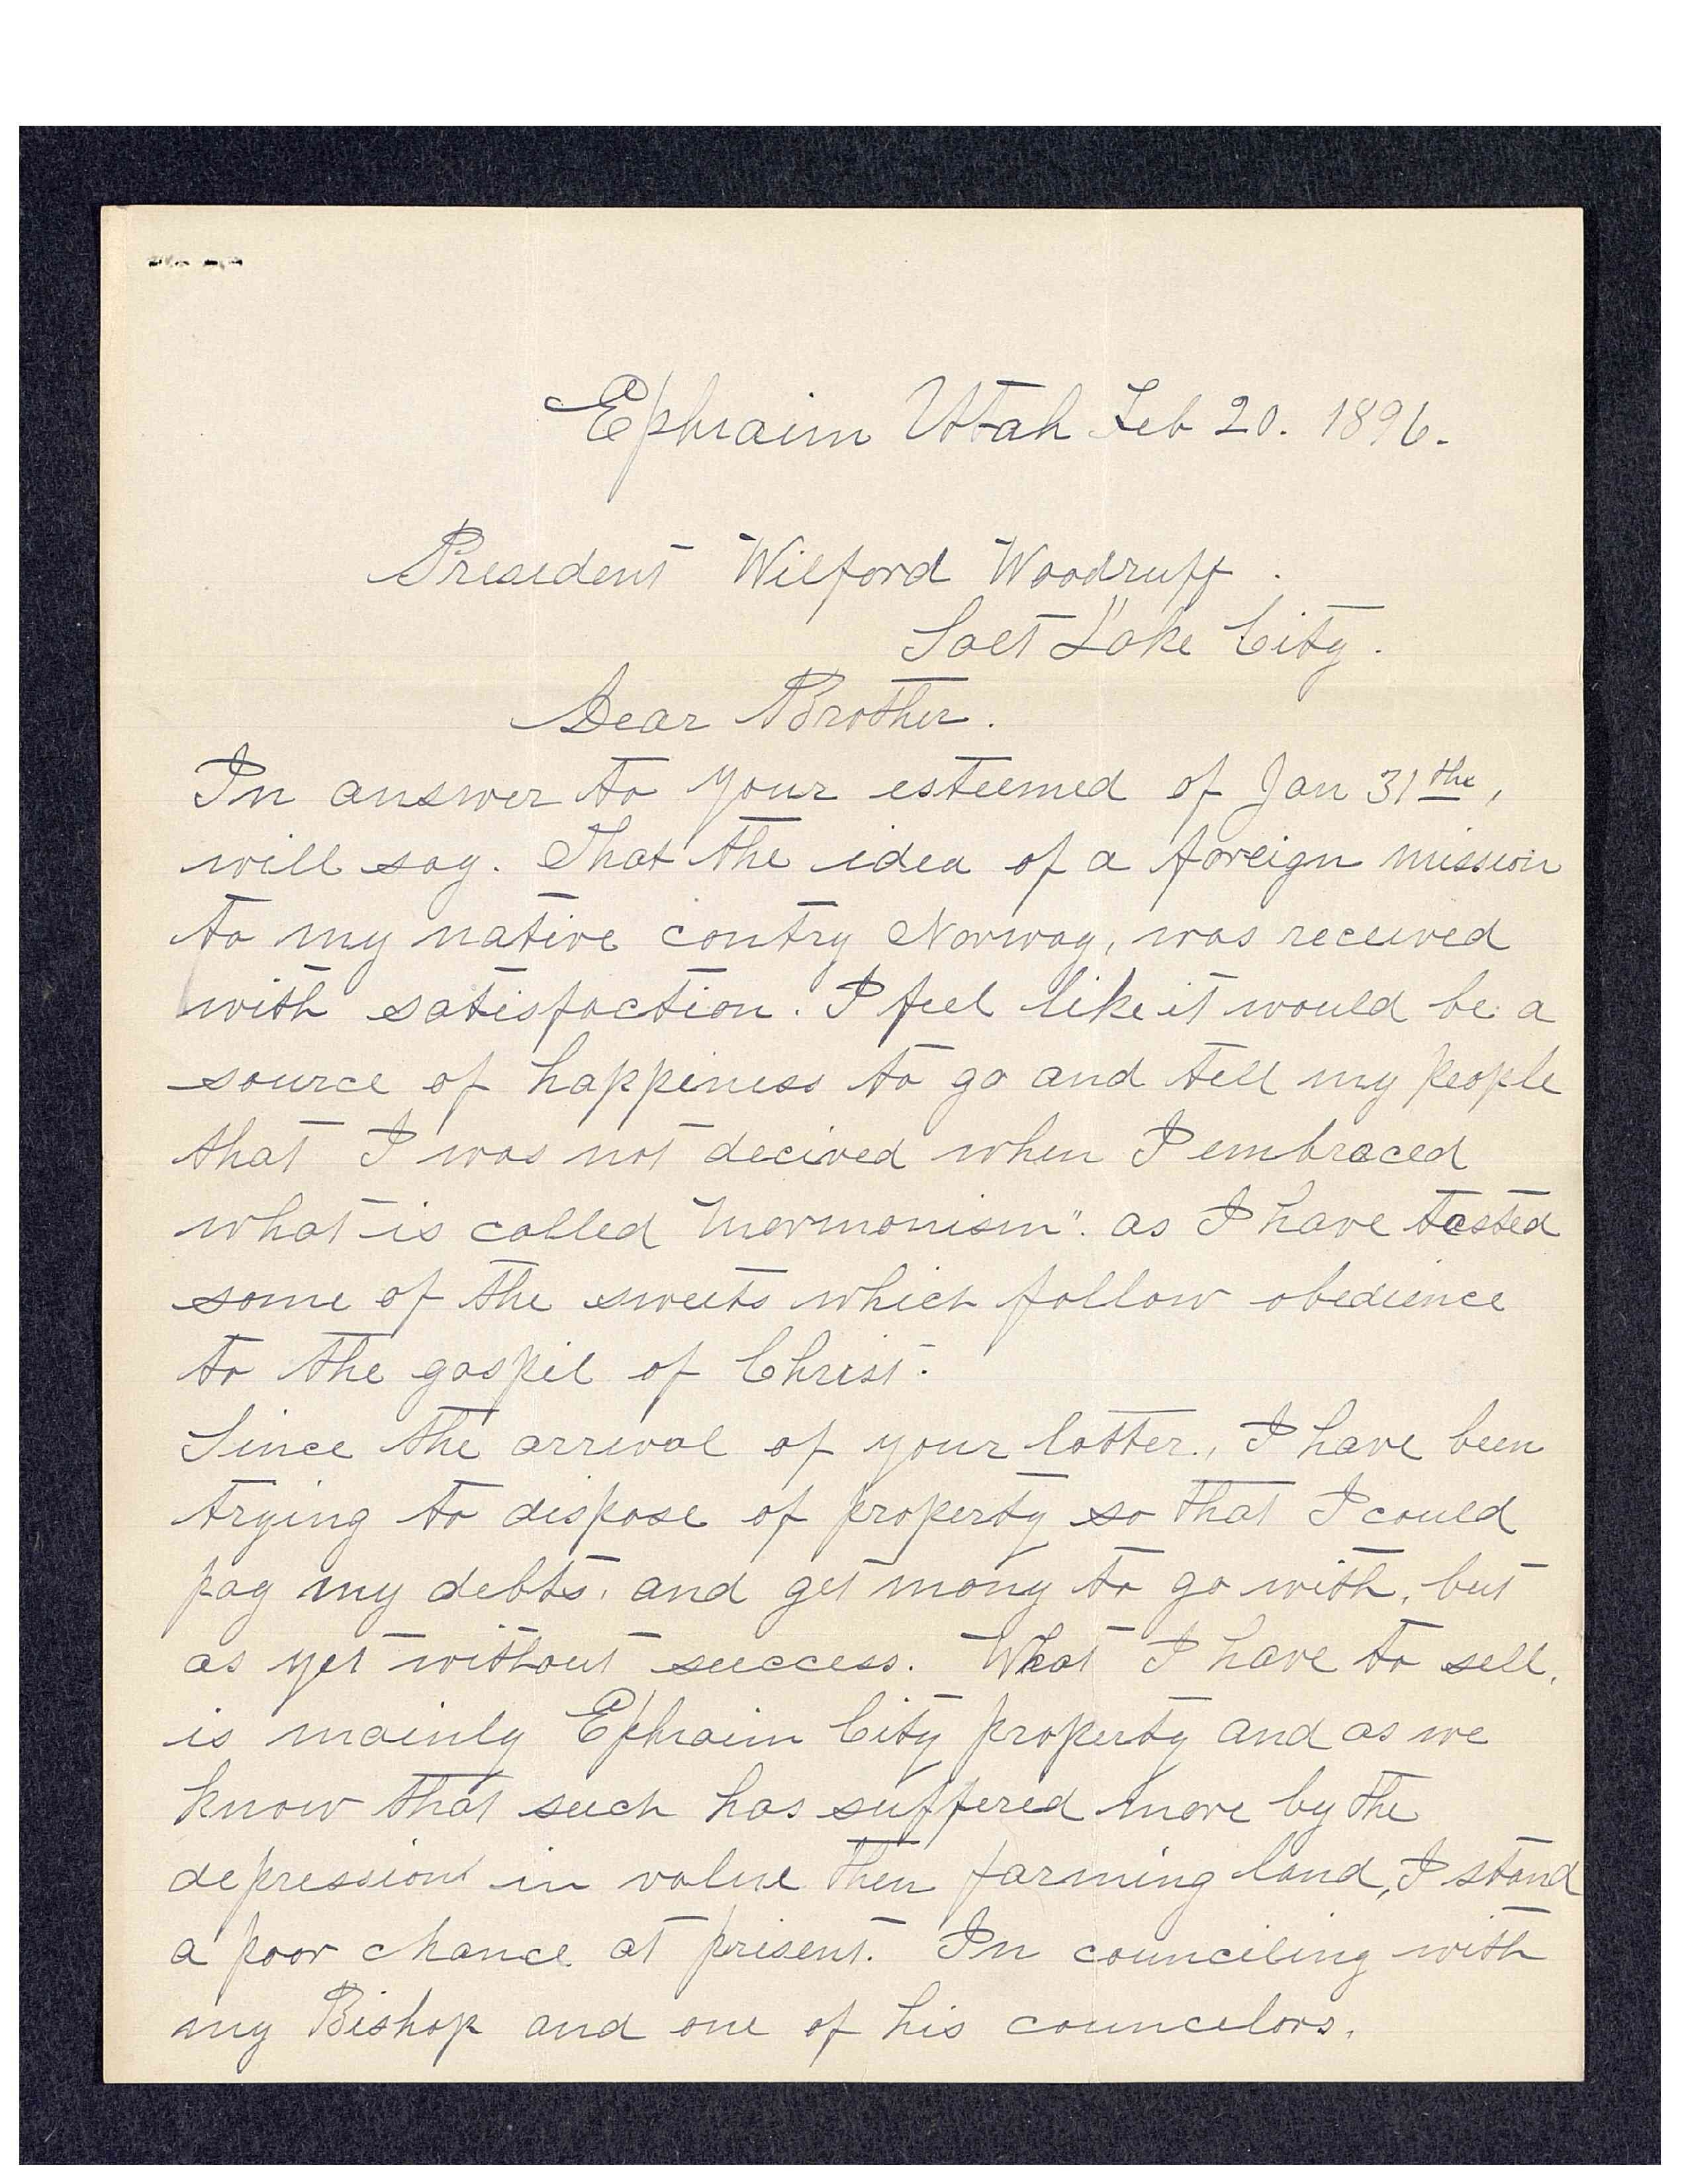 Ephraim Utah Feb 20. 1896.
President Wilford Woodruff.
Salt Lake City.
Dear Brother.
In answer to your esteemed of Jan 31the,
will say. That the idea of a foreign mission
to my native contry Norway, was received
with satisfaction. I feel like it would be a
source of happiness to go and tell my people
that I was not decived when I embraced
what is called "Mormonism". as I have tasted
some of the sweets which follow obedience
to the gospel of Christ.
Since the arrival of your latter., I have been
trying to dispose of property so that I could
pay my debts, and get mony to go with, but
as yet without success. What I have to sell,
is mainly Ephraim City property and as we
know that such has suffered more by the
depression in value then farming land, I stand
a poor chance at present. In counciling with
my Bishop and one of his councelors,